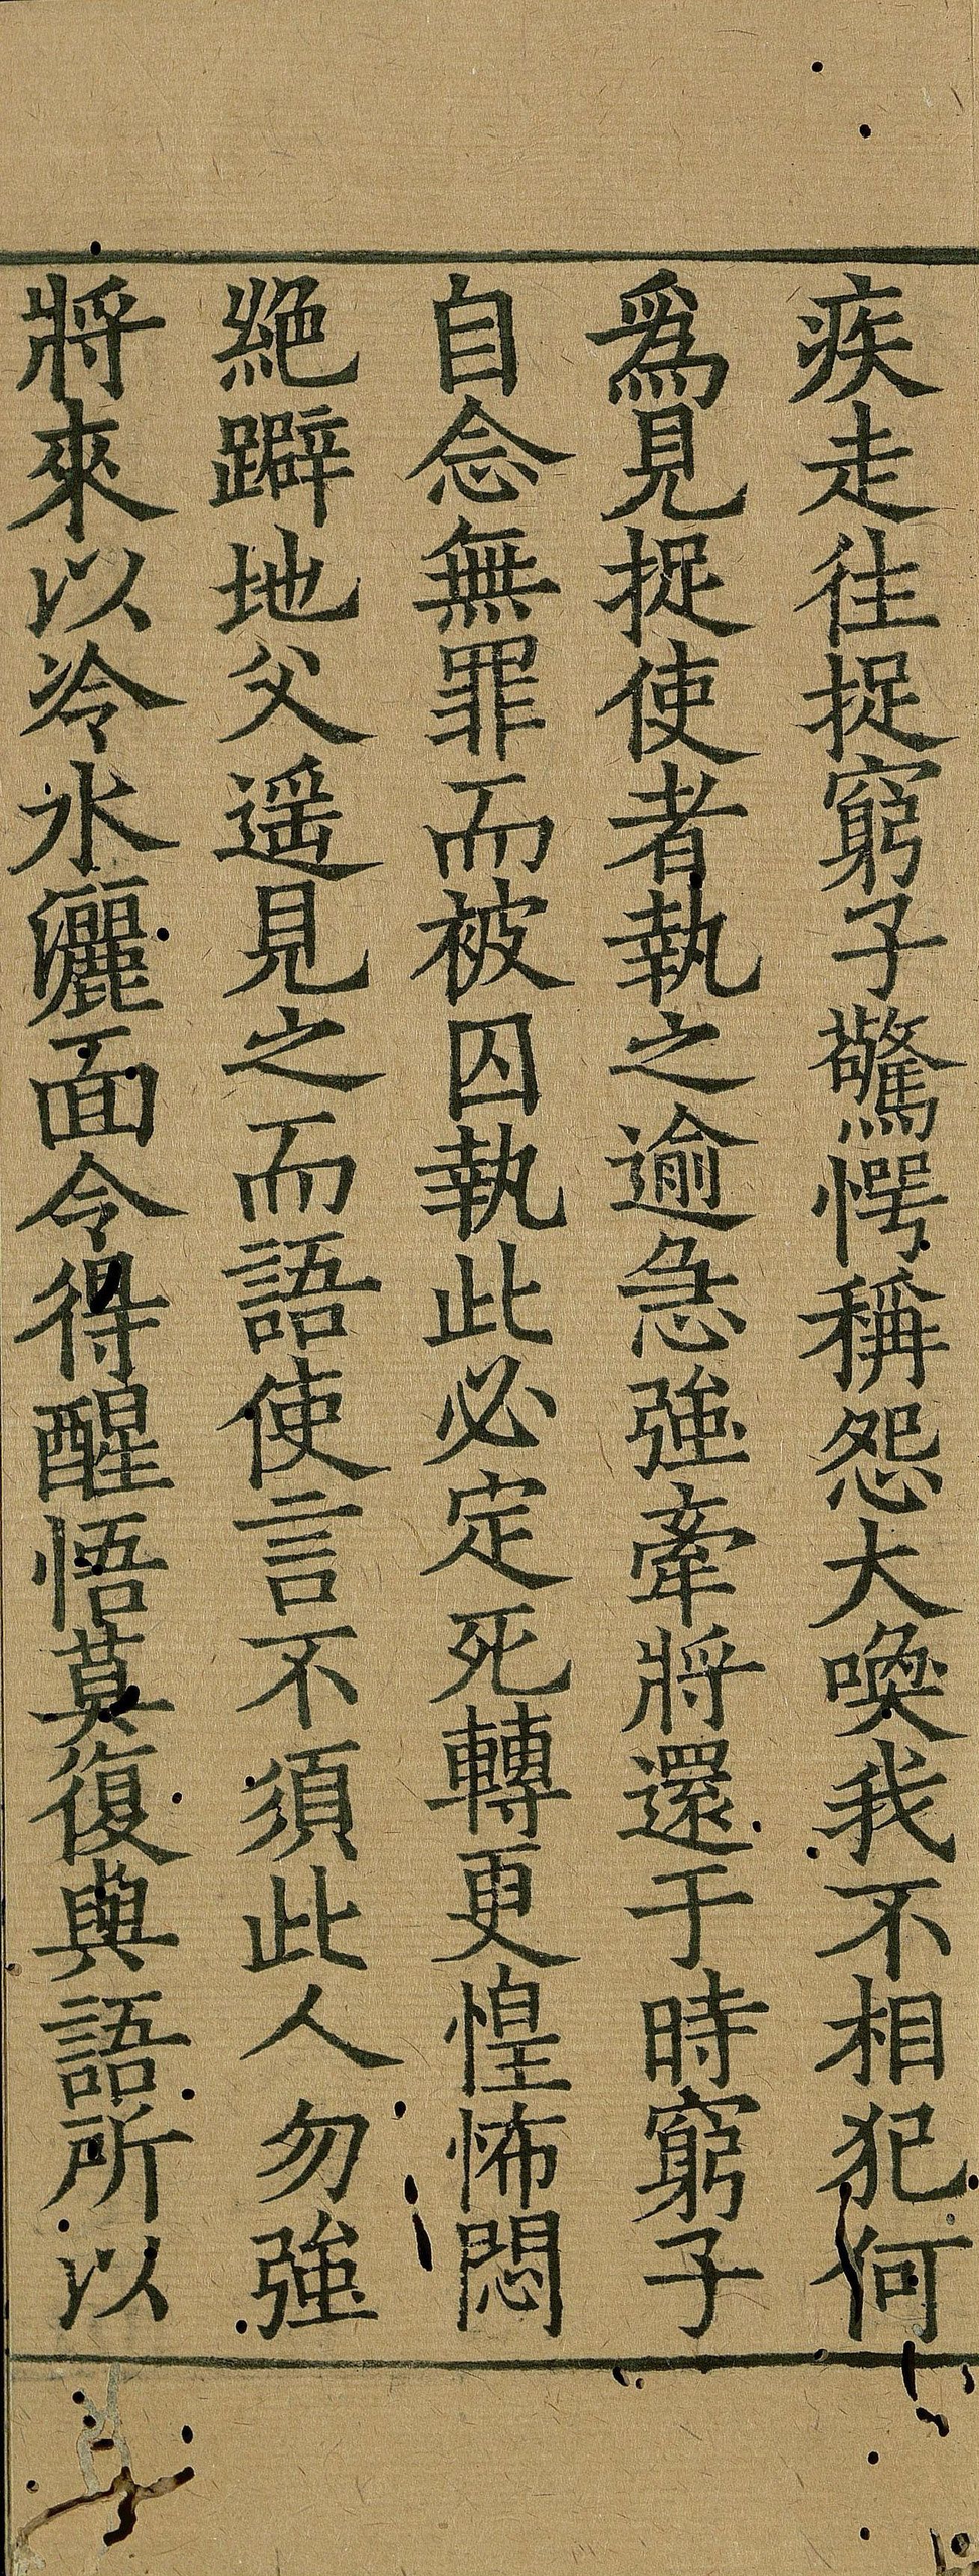 疾走往捉窮子驚愕稱怨大喚我不相犯何
爲見捉使者執之逾急強牽將還于時窮子
自念無罪而被囚執此必定死轉更惶怖悶
絶躃地父遥見之而語使言不須此人勿強
將來以冷水灑面令得醒悟莫復與語所以